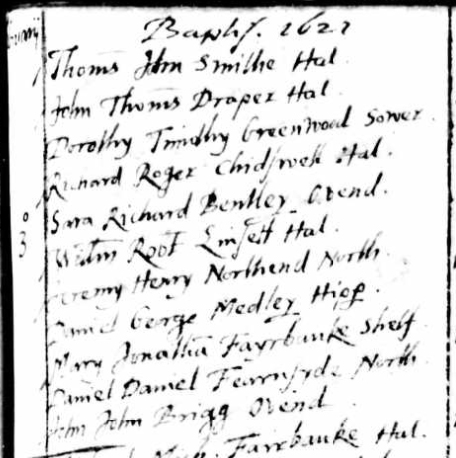 Baptis. 1621
Thoms John Smithe Hal.
John Thoms Draper Hal.
Dorothy Timothy Greenwood Sower.
Richard Roger Chidswell Hal.
Sara Richard Bentley Ovend.
Willm Robt Hal.
Jeremy Henry Northend North.
Daniel George Medley Hipp.
Mary Jonathā Fayrbanke Shelf.
Daniel Daniel Fearnsyde North.
John John Brigg Ovend
Mich. Fairbanke Hal.